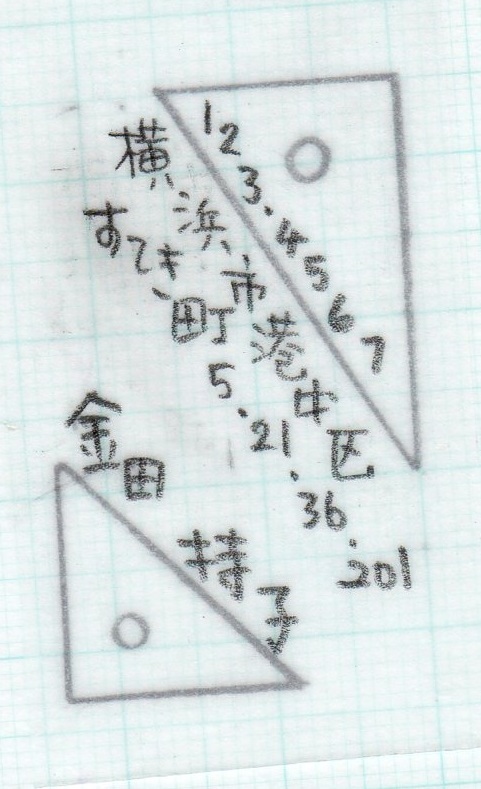 123.4567
横浜市港中区
すてき町5.21.36.201
金田持子